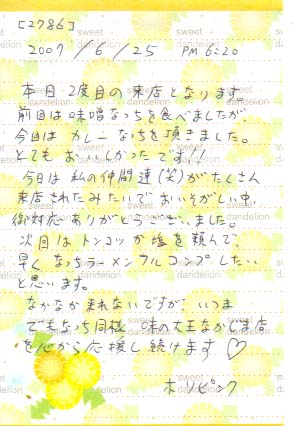 [2786]
2007/6/25 PM 6:20
本月2度目の来店となります。
前回は味噌なっちを食べましたが、
今日はカレーなっちを頂きました。
とてもおいしかったです!!
今日は私の仲間達(笑)がたくさん
来店されたみたいでおいそがしい中、
御対応ありがとうございました。
次回はトンコツか塩を頼んで、
早くなっちラーメンフルコンプしたい
と思います。
なかなか来れないですが、いつま
でもなっち同様、味の大王なかじま店
を心から応援し続けます♡
ホリピンク
sweet
dandelion